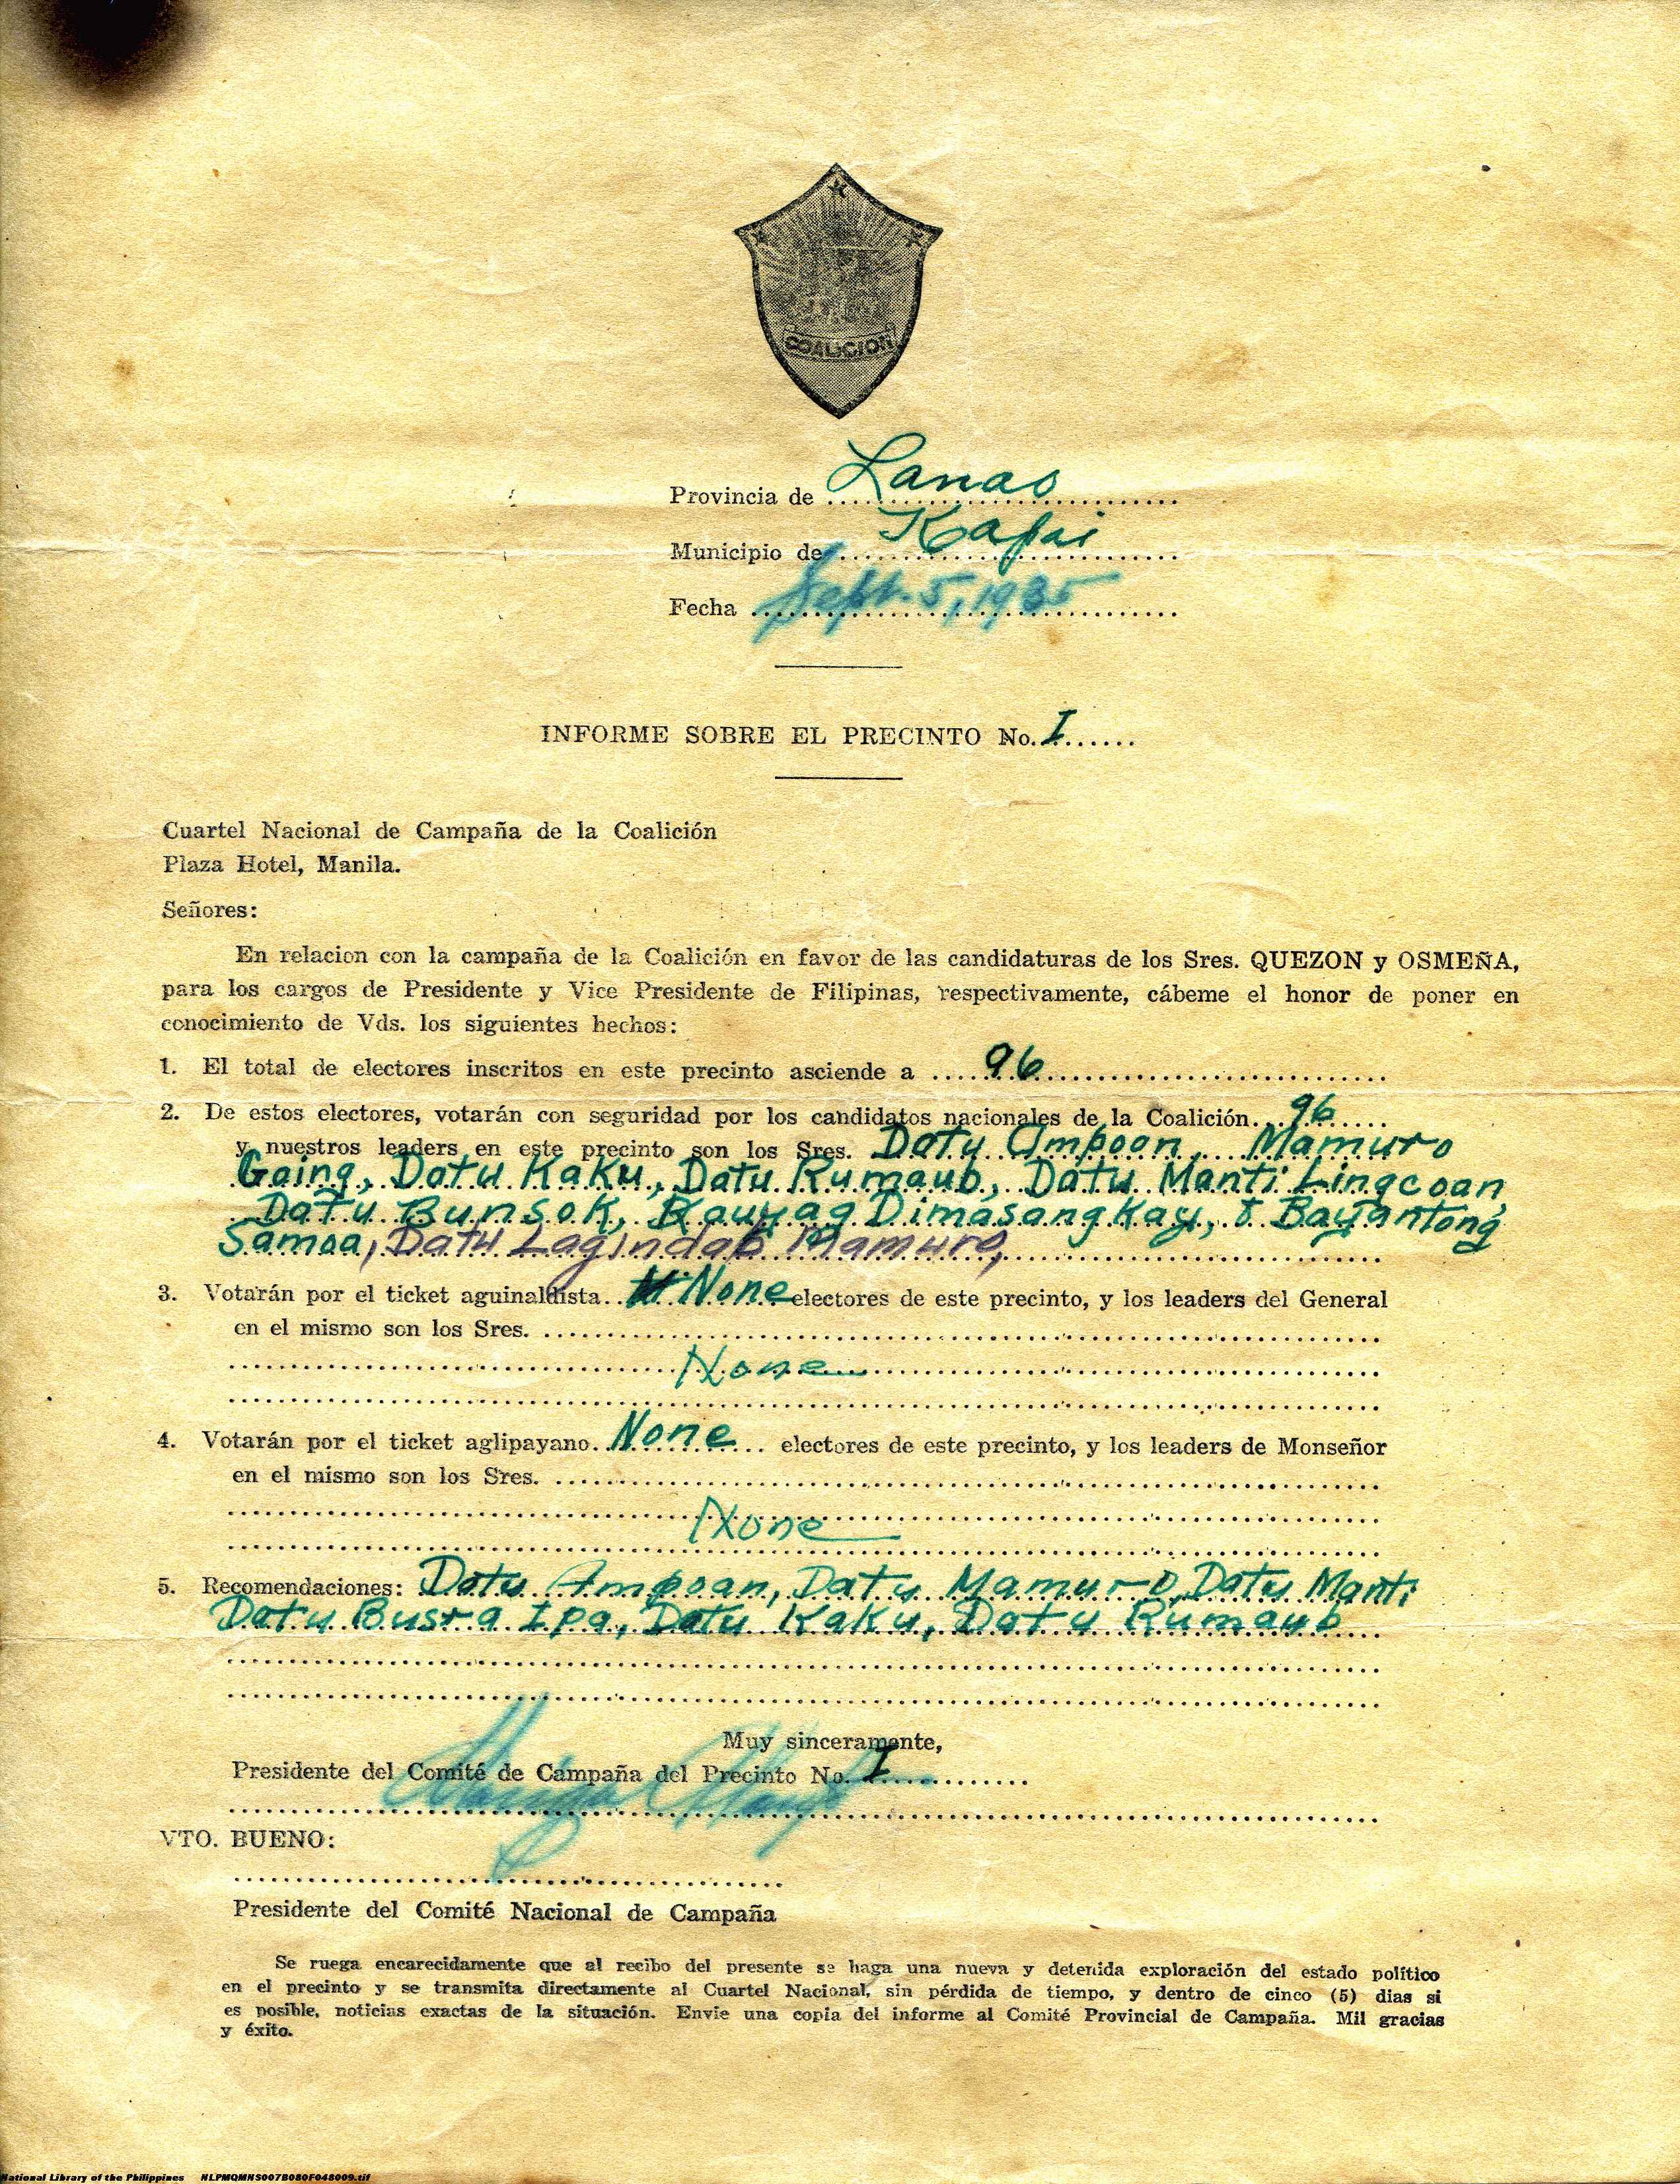 COALICION
Provincia de Lanao
Municipio de Kapai
Fecha Sept. 5, 1935
INFORME SOBRE EL PRECINTO No. I
Cuartel Nacional de Campaña de la Coalición
Plaza Hotel, Manila.
Señores:
En relacion con la campaña de la Coalición en favor de las candidaturas de los Sres. QUEZON y OSMEÑA,
para los cargos de Presidente y Vice Presidente de Filipinas, respectivamente, cábeme el honor de poner en
conocimiento de Vds. los siguientes hechos:
1. El total de electores inscritos en este precinto asciende a .... 96
2. De estos electores, votarán con seguridad por los candidatos nacionales de la Coalición... 96
y nuestros leaders en este precinto son los Sres. Datu Ampoan, Mamuro
Going, Datu Kaku, Datu Rumaub, Datu Manti Lingcoan,
Datu Bunsok, Bauyag Dimasangkay, & Bayantong
Samoa, Datu Lagindab Mamuro,
3. Votarán por el ticket aguinaldista None electores de este precinto, y los leaders del General
en el mismo son los Sres.
None
4. Votarán por el ticket aglipayano. None electores de este precinto, y los leaders de Monseñor
en el mismo son los Sres.
None
5. Recomendaciones: Datu Ampoan, Datu Mamuro, Datu Manti
Datu Busra Ipa, Datu Kaku, Datu Rumaub
Muy sinceramente,
Presidente del Comité de Campaña del Precinto No. I
VTO. BUENO:
Presidente del Comité Nacional de Campaña
Se ruega encarecidamente que al recibo del presente se haga una nueva y detenida exploración del estado político
en el precinto y se transmita directamente al Cuartel Nacional, sin pérdida de tiempo, y dentro de cinco (5) dias si
es posible, noticias exactas de la situación. Envie una copia del informe al Comité Provincial de Campaña. Mil gracias
y éxito.
National Library of the Philippines NLPMQMNS007B080F048009.tif